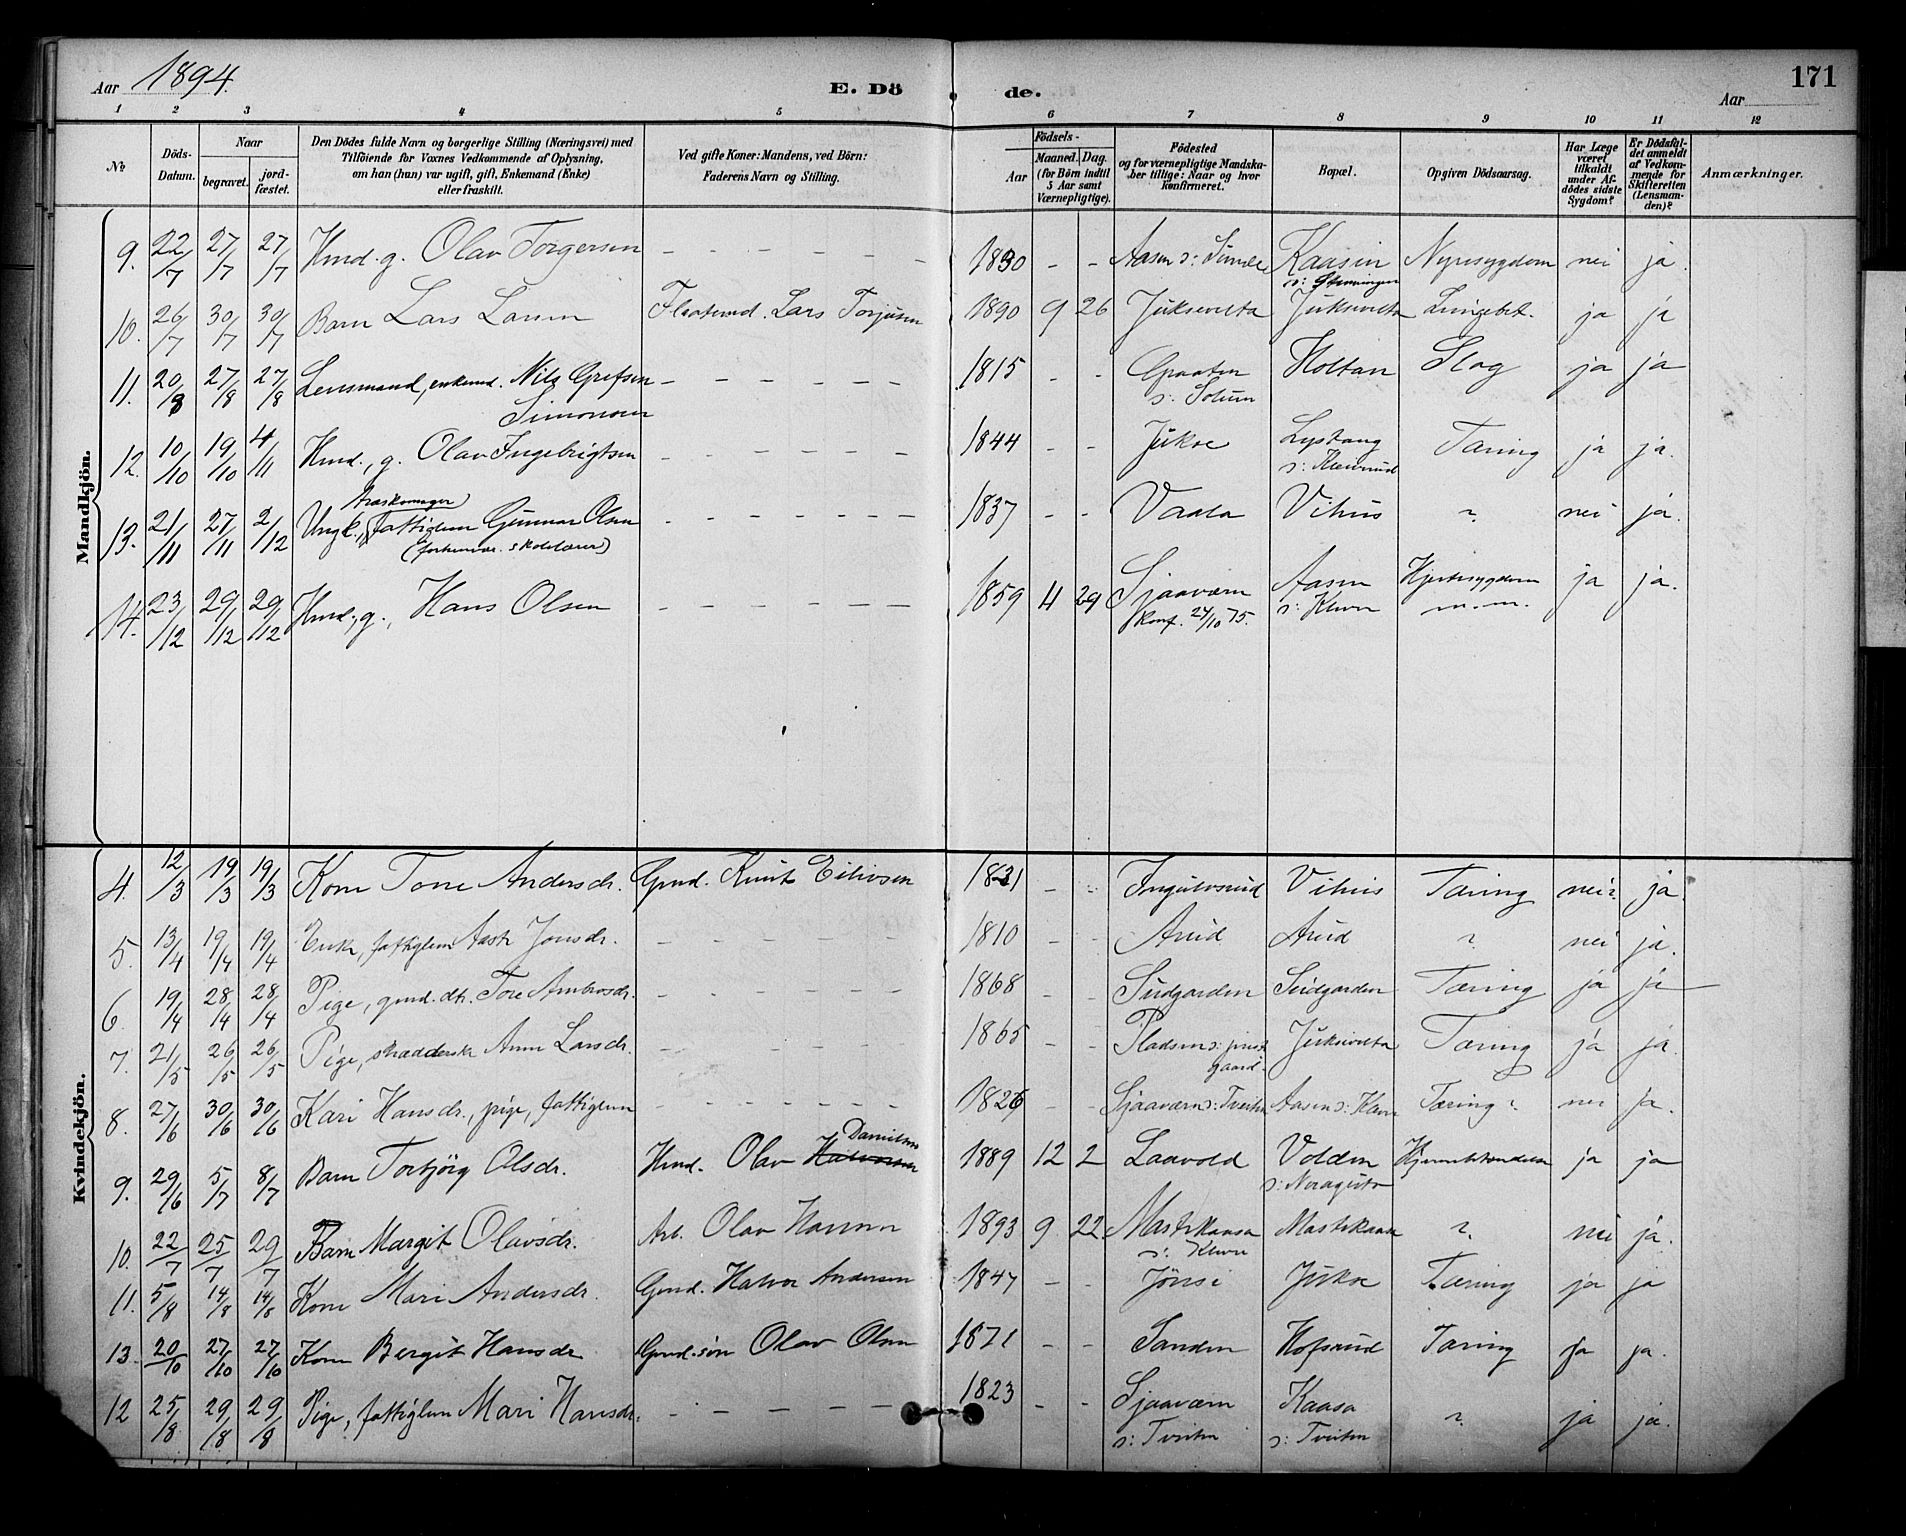 Aar 1894.
E. Dö de.
Aar
171
1 2 3 4 5 6 7 8 9 10 11 12
No
Döds-Datum.
Naar
begravet.
jord-fæstet.
Den Dödes fulde Navn og borgerlige Stilling (Næringsvei) med
Tilföiende for Voxnes Vedkommende af Oplysning,
om han (hun) var ugift, gift, Enkemand (Enke)
eller fraskilt.
Ved gifte Koner: Mandens, ved Börn:
Faderens Navn og Stilling.
Födsels-
Aar
Maaned. Dag.
(for Börn indtil
5 Aar samt
Værnepligtige).
Födested
og for værnepligtige Mandska-
ber tillige: Naar og hvor
konfirmeret.
Bopæl.
Opgiven Dödsaarsag.
Har Læge
været
tilkaldt
under Af-
dödes sidste
Sygdom?
Er Dödsfal-
det anmeldt
af Vedkom-
mende for
Skifteretten
(Lensman-
den)?
Anmærkninger.
Mandkjön.
9. 22/7 27/7 27/7 Kmd. g. Olav Torgersen - - - - - 1830 - - Aasen s: Sunde Kaasin Nyresygdom nei ja.
10. 26/7 30/7 30/7 Barn Lars Larsen Flaatemd. Lars Torjusen 1890 9 26 Juksevilta Juksevilta Lungebet. ja ja
11. 20/8 27/8 27/8 Lensmand, enkemd. Nils Grefsen - - - - - 1815 - - Graaten Holtan Slag ja ja
Simonsen s: Solum
12. 10/10 19/10 4/11 Hmd., g. Olav Ingebrigtsen - - - - - 1844 - - Jukse Lystang Tæring ja ja.
s: Kleivrud
træskomager
13. 21/11 27/11 2/12 Ungk., fattiglem Gunnar Olsen - - - - - 1837 - - Vaala Vihus ? nei ja.
(forhenvær. skolelærer)
14. 23/12 29/12 29/12 Hmd., g., Hans Olsen - - - - - 1859 4 29 Sjaaværn Aasen Hjertesygdom ja ja.
konf. 24/10 75. s: Kleven m.m.
Kvindekjön.
4. 12/3 19/3 19/3 Kone Tone Andersdr. Gmd. Knut Eilivsen 1831 - - Ingulvsrud Vihus Tæring nei? ja
5. 13/4 19/4 19/4 Enke, fattiglem Aaste Jonsdr. - - - - - 1810 - - Aarud Aarud ? nei ja.
6. 19/4 28/4 28/4 Pige, gmd. dtr. Tone Ambrosdr. - - - - - 1868 - - Sudgarden Sudgarden Tæring ja ja
7. 21/5 26/5 26/5 Pige, skrædderske Anne Larsdr. - - - - - 1865 - - Pladsen s: prest Juksevilta Tæring ja ja.
gaard.
8. 27/6 30/6 30/6 Kari Hansdr., pige, fattiglem - - - - - 1826 - - Sjaaværn s: Tveiten Aasen s: Kleven Tæring? nei ja.
Danielsen
9. 29/6 5/7 8/7 Barn Torbjörg Olsdr. Hmd. Olav Halvorsen 1889 12 2 Laavold Volden Hjernebetændelse ja ja
10. 22/7 25/7 29/7 Barn Margit Olavsdr. Arb. Olav Hansen 1893 9 22 Mastekaasa Mastekaasa ? nei ja.
s: Kleven
11. 5/8 14/8 14/8 Kone Mari Andersdr. Gmd. Halvor Andersen 1847 - - Jönsi Jukse Tæring ja ja
13. 20/10 27/10 27/10 Kone Bergit Hansdr. Gmd. sön Olav Olsen 1871 - - Sanden Hofsrud Tæring ja ja.
12 25/8 29/8 29/8 Pige, fattiglem Mari Hansdr. - - - - - 1823 - - Sjaaværn Kaasa ? ja ja.
s: Tveiten s: Tveiten